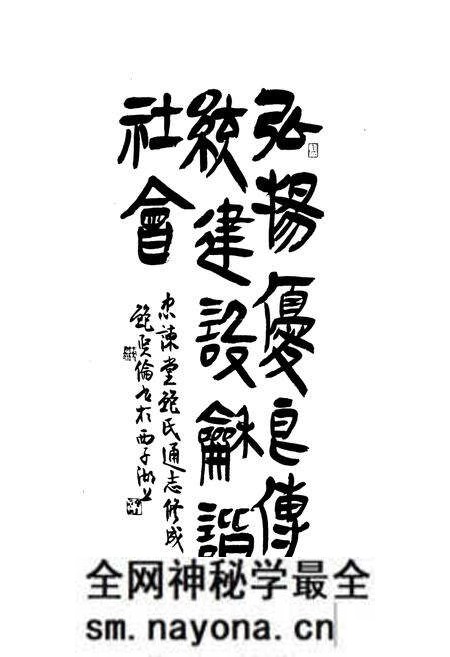 弘揚優良傳
統建設龢諧
社會
忠諫堂鲍氏通志修成
鲍賢倫书於西子湖上
全网神秘学最全
sm.nayona.cn